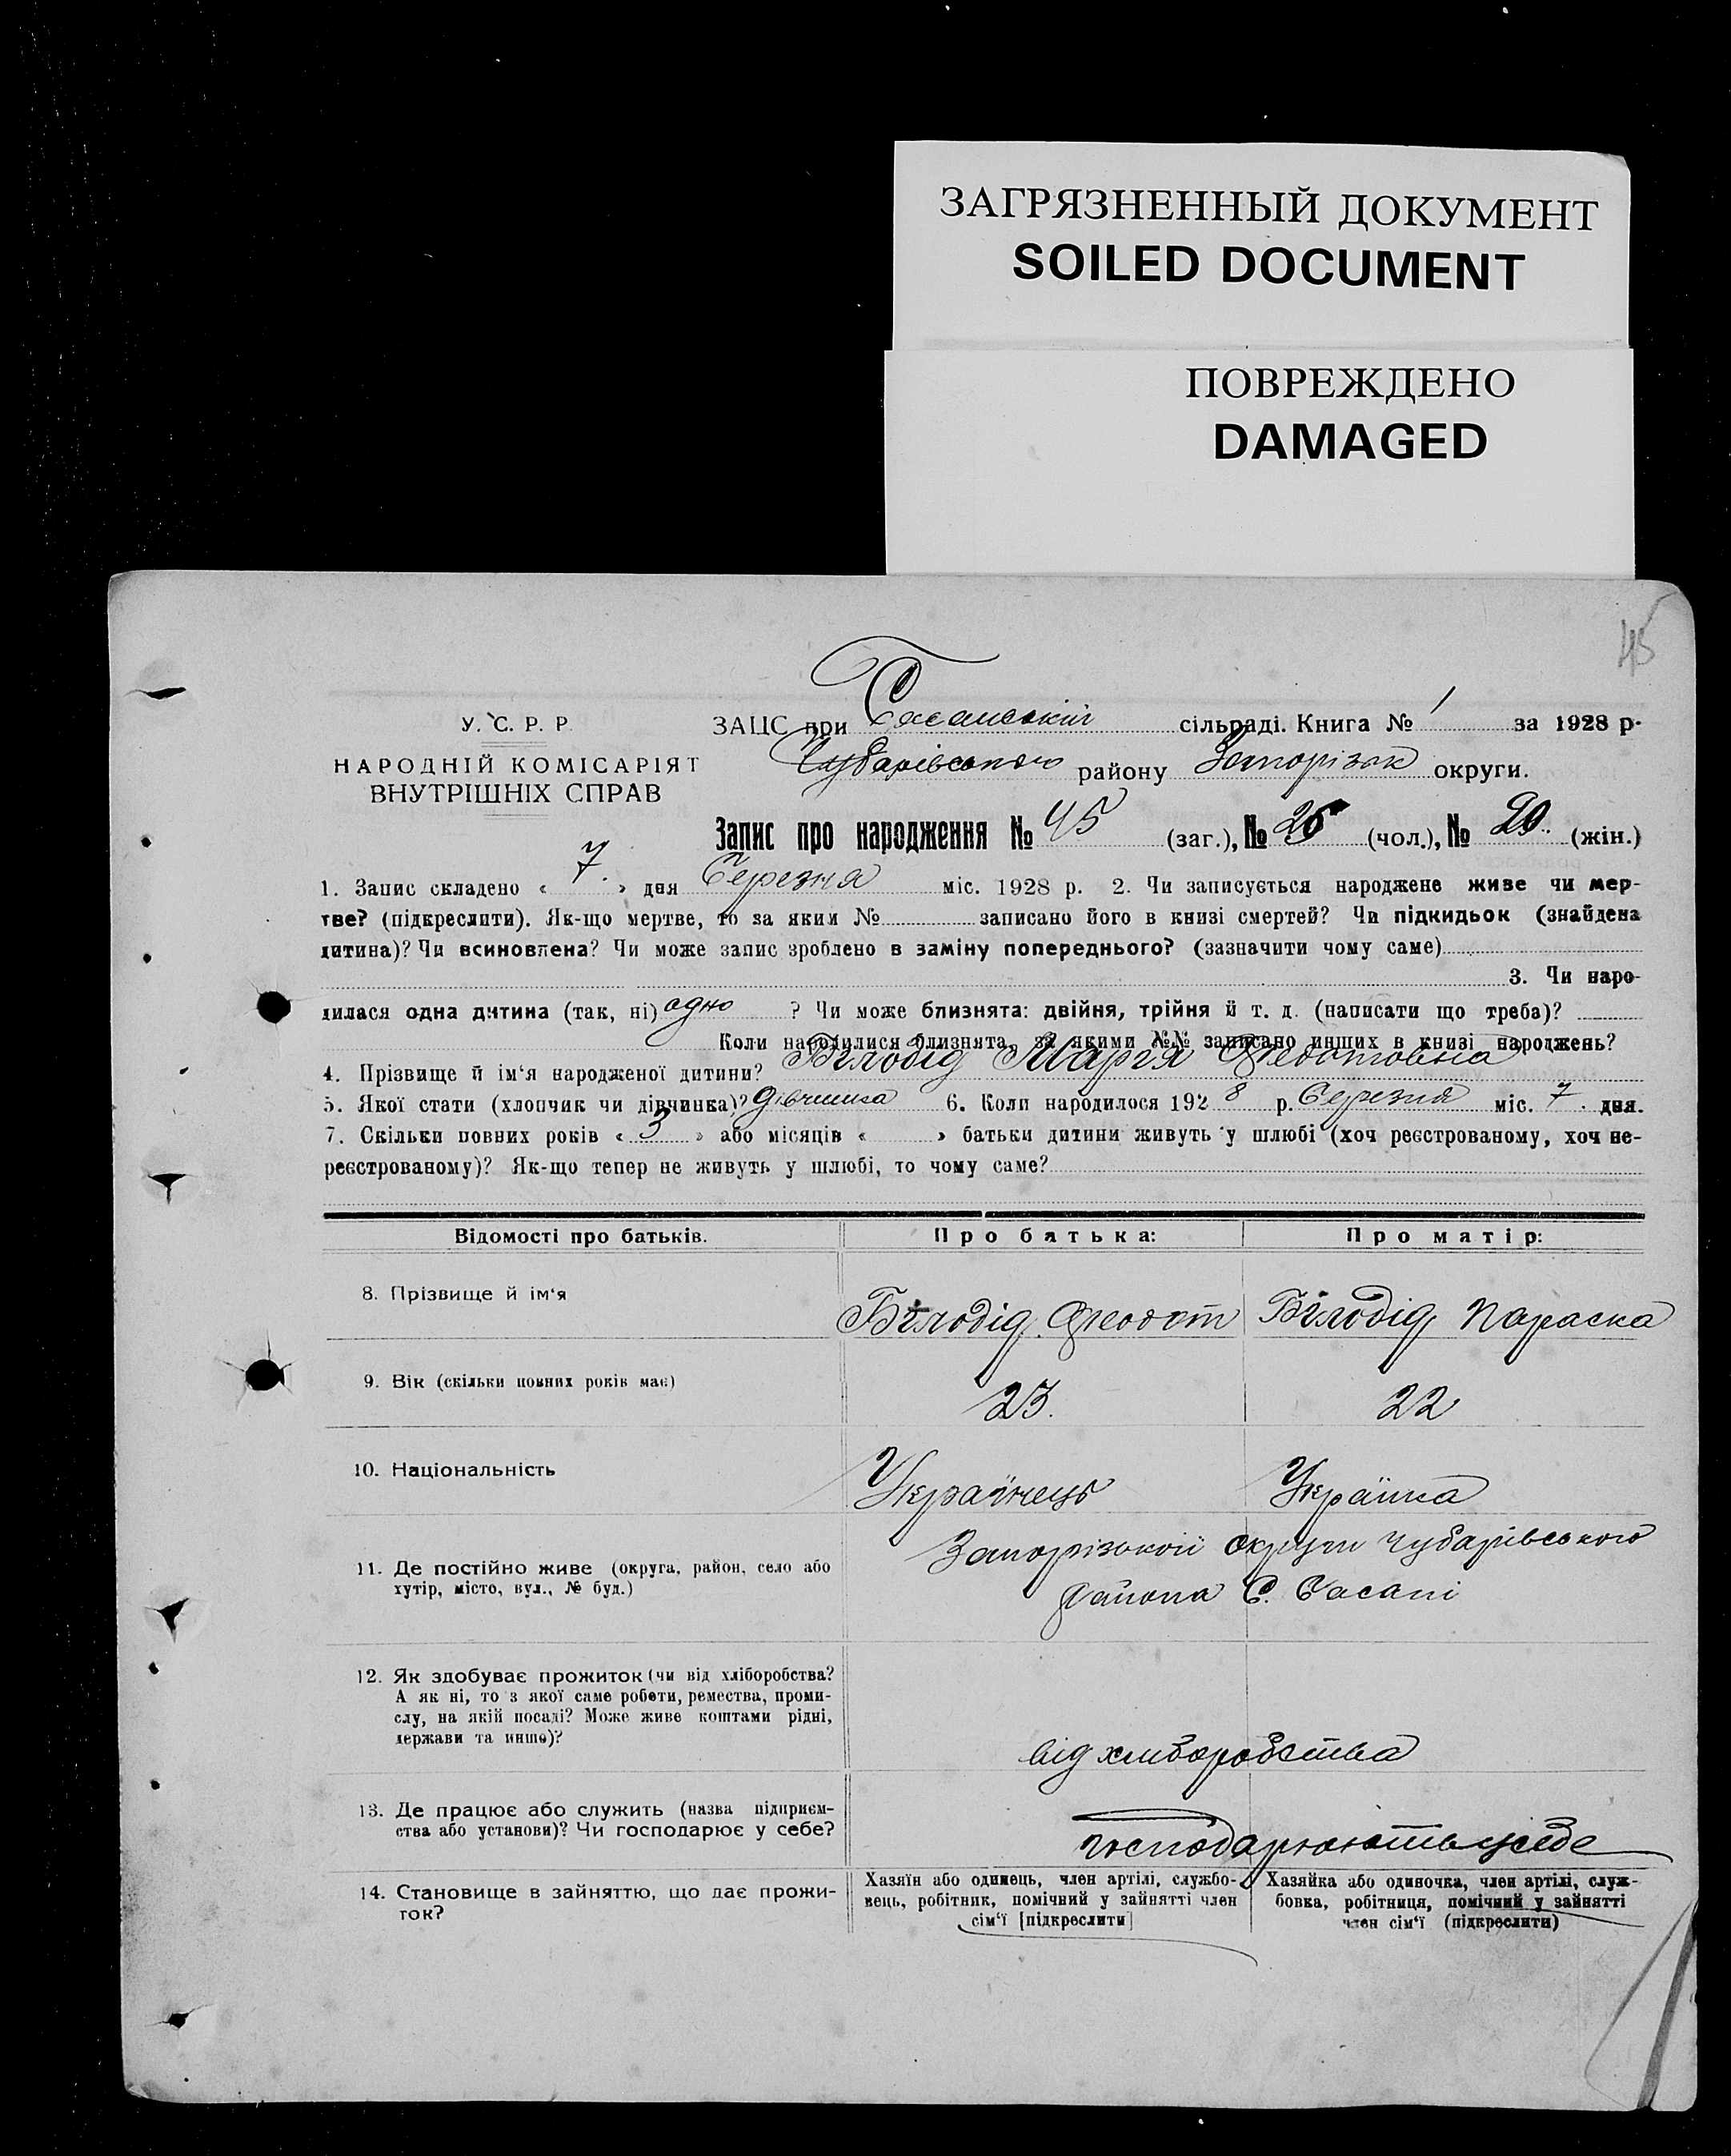 ЗАГРЯЗНЕННЫЙ ДОКУМЕНТ
SOILED DOCUMENT
ПОВРЕЖДЕНО
DAMAGED
45
У. С. Р. Р.
НАРОДНІЙ КОМІСАРІЯТ
ВНУТРІШНІХ СПРАВ
ЗАЦС при Басанській сільраді. Книга № 1 за 1928 р.
Чубарівського району Запорізьк округи.
Запис про народження № 45 (заг.), № 25 (чол.), № 20. (жін.)
1. Запис складено « 7. » дня Березня міс. 1928 р. 2. Чи записується народжене живе чи мер-
тве? (підкреслити). Як-що мертве, то за яким № записано його в книзі смертей? Чи підкидьок (знайдена
дитина)? Чи всиновлена? Чи може запис зроблено в заміну попереднього? (зазначити чому саме)
3. Чи наро-
дилася одна дитина (так, ні) одно ? Чи може близнята: двійня, трійня й т. д. (написати що треба)?
Коли народилися близнята, за якими №№ записано инших в книзі народжень?
4. Прізвище й ім‘я народженої дитини? Білодід Марія Федотовна
5. Якої стати (хлопчик чи дівчинка)? дівчинка 6. Коли народилося 1928 р. Березня міс. 7. дня.
7. Скільки повних років « 3 » або місяців « » батьки дитини живуть у шлюбі (хоч реєстрованому, хоч не-
реєстрованому)? Як-що тепер не живуть у шлюбі, то чому саме?
Відомості про батьків. Про батька: Про матір:
8. Прізвище й ім‘я Білодід Федот Білодід Параска
9. Вік (скільки повних років має) 23. 22
10. Національність Українець Українка
11. Де постійно живе (округа, район, село або
хутір, місто, вул., № буд.)
Запорізької округи Чубарівського
района С. Басані
12. Як здобуває прожиток (чи від хліборобства?
А як ні, то з якої саме роботи, ремества, проми-
слу, на якій посаді? Може живе коштами рідні,
держави та инше)?
від хліборобства
13. Де працює або служить (назва підприєм-
ства або установи)? Чи господарює у себе?
господарюють у себе
14. Становище в зайняттю, що дає прожи-
ток?
Хазяїн або одинець, член артілі, службо-
вець, робітник, помічний у зайнятті член
сім‘ї [підкреслити]
Хазяйка або одиночка, член артілі, служ-
бовка, робітниця, помічний у зайнятті
член сім‘ї (підкреслити)